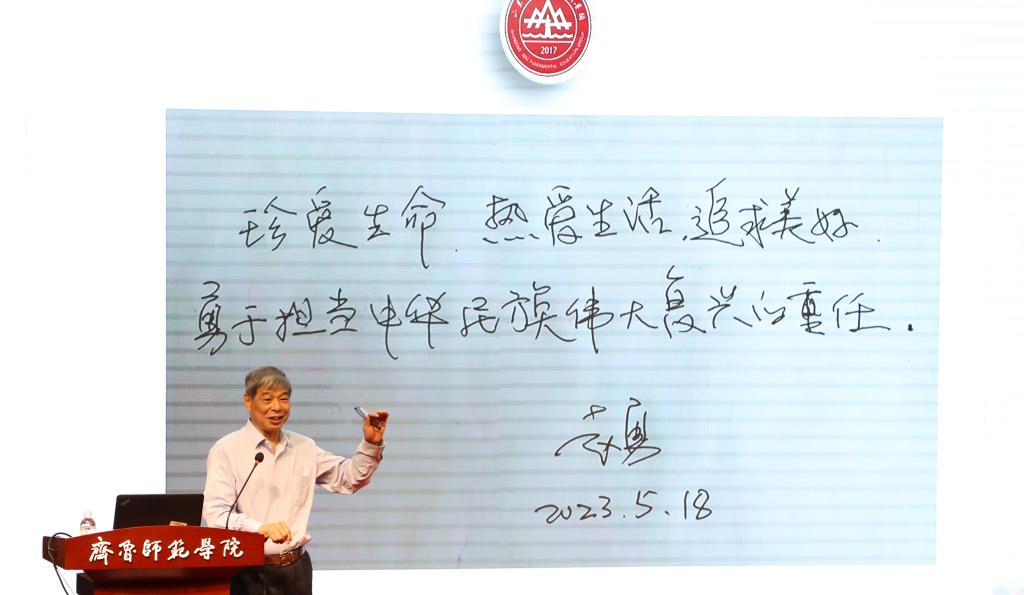 2017
SHANDONG SDU FUNDAMENTAL EDUCATION GROUP
珍爱生命.热爱生活.追求美好.
勇于担当中华民族伟大复兴的重任.
2023.5.18
齊魯師範學院